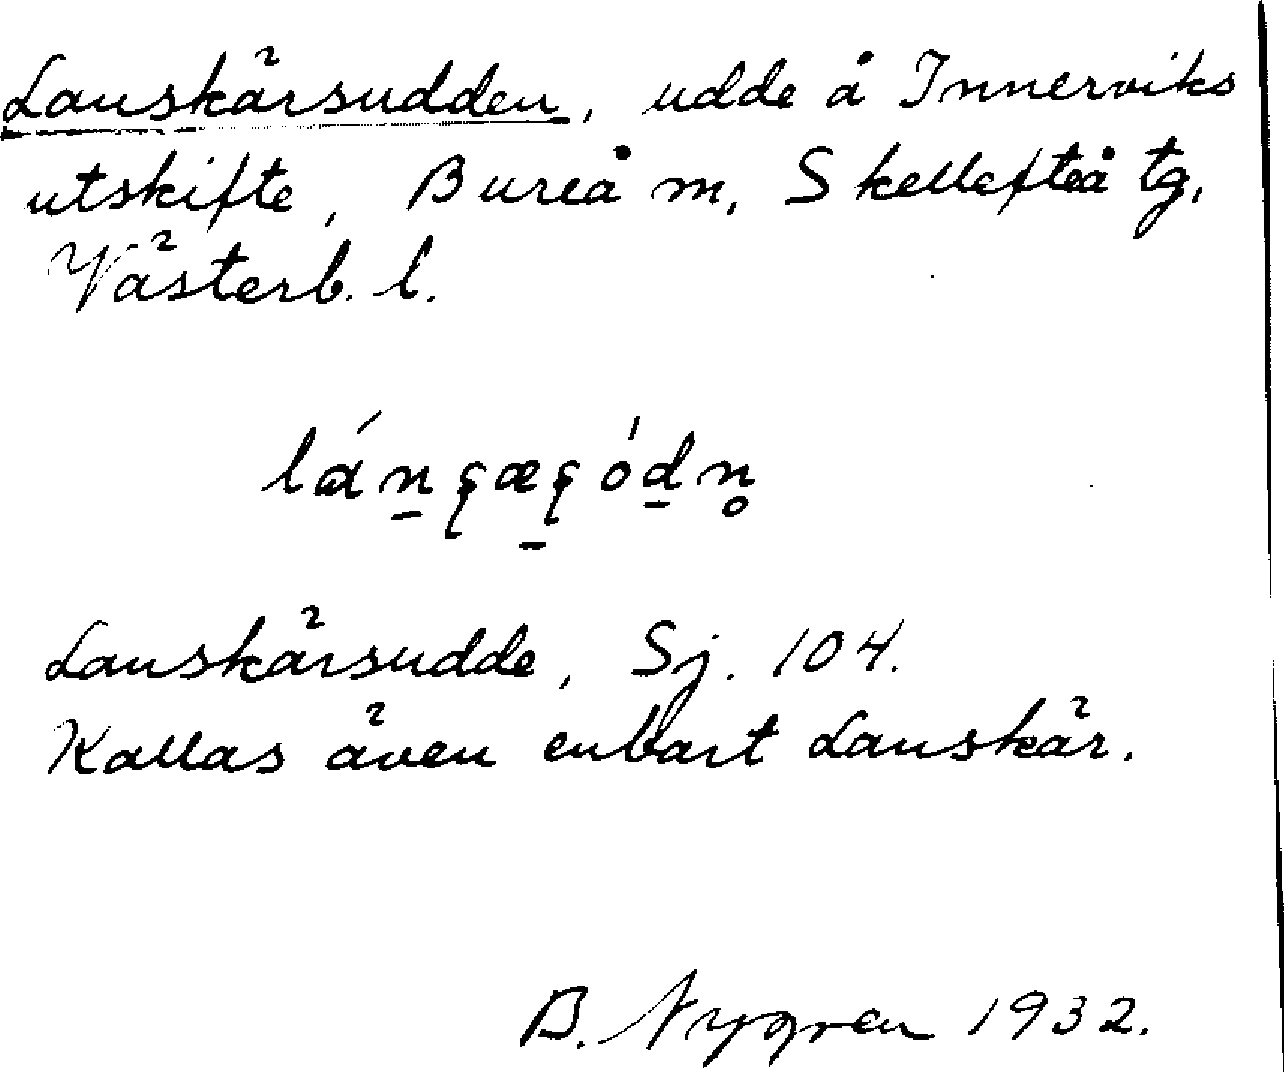 Lanskärsudden, udde å Innerviks
utskifte, Bureå m, Skellefteå tg,
Västerb. l.
Lanskärsudde, Sj. 104.
Kallas även enbart Lanskär.
B. Nygren 1932.